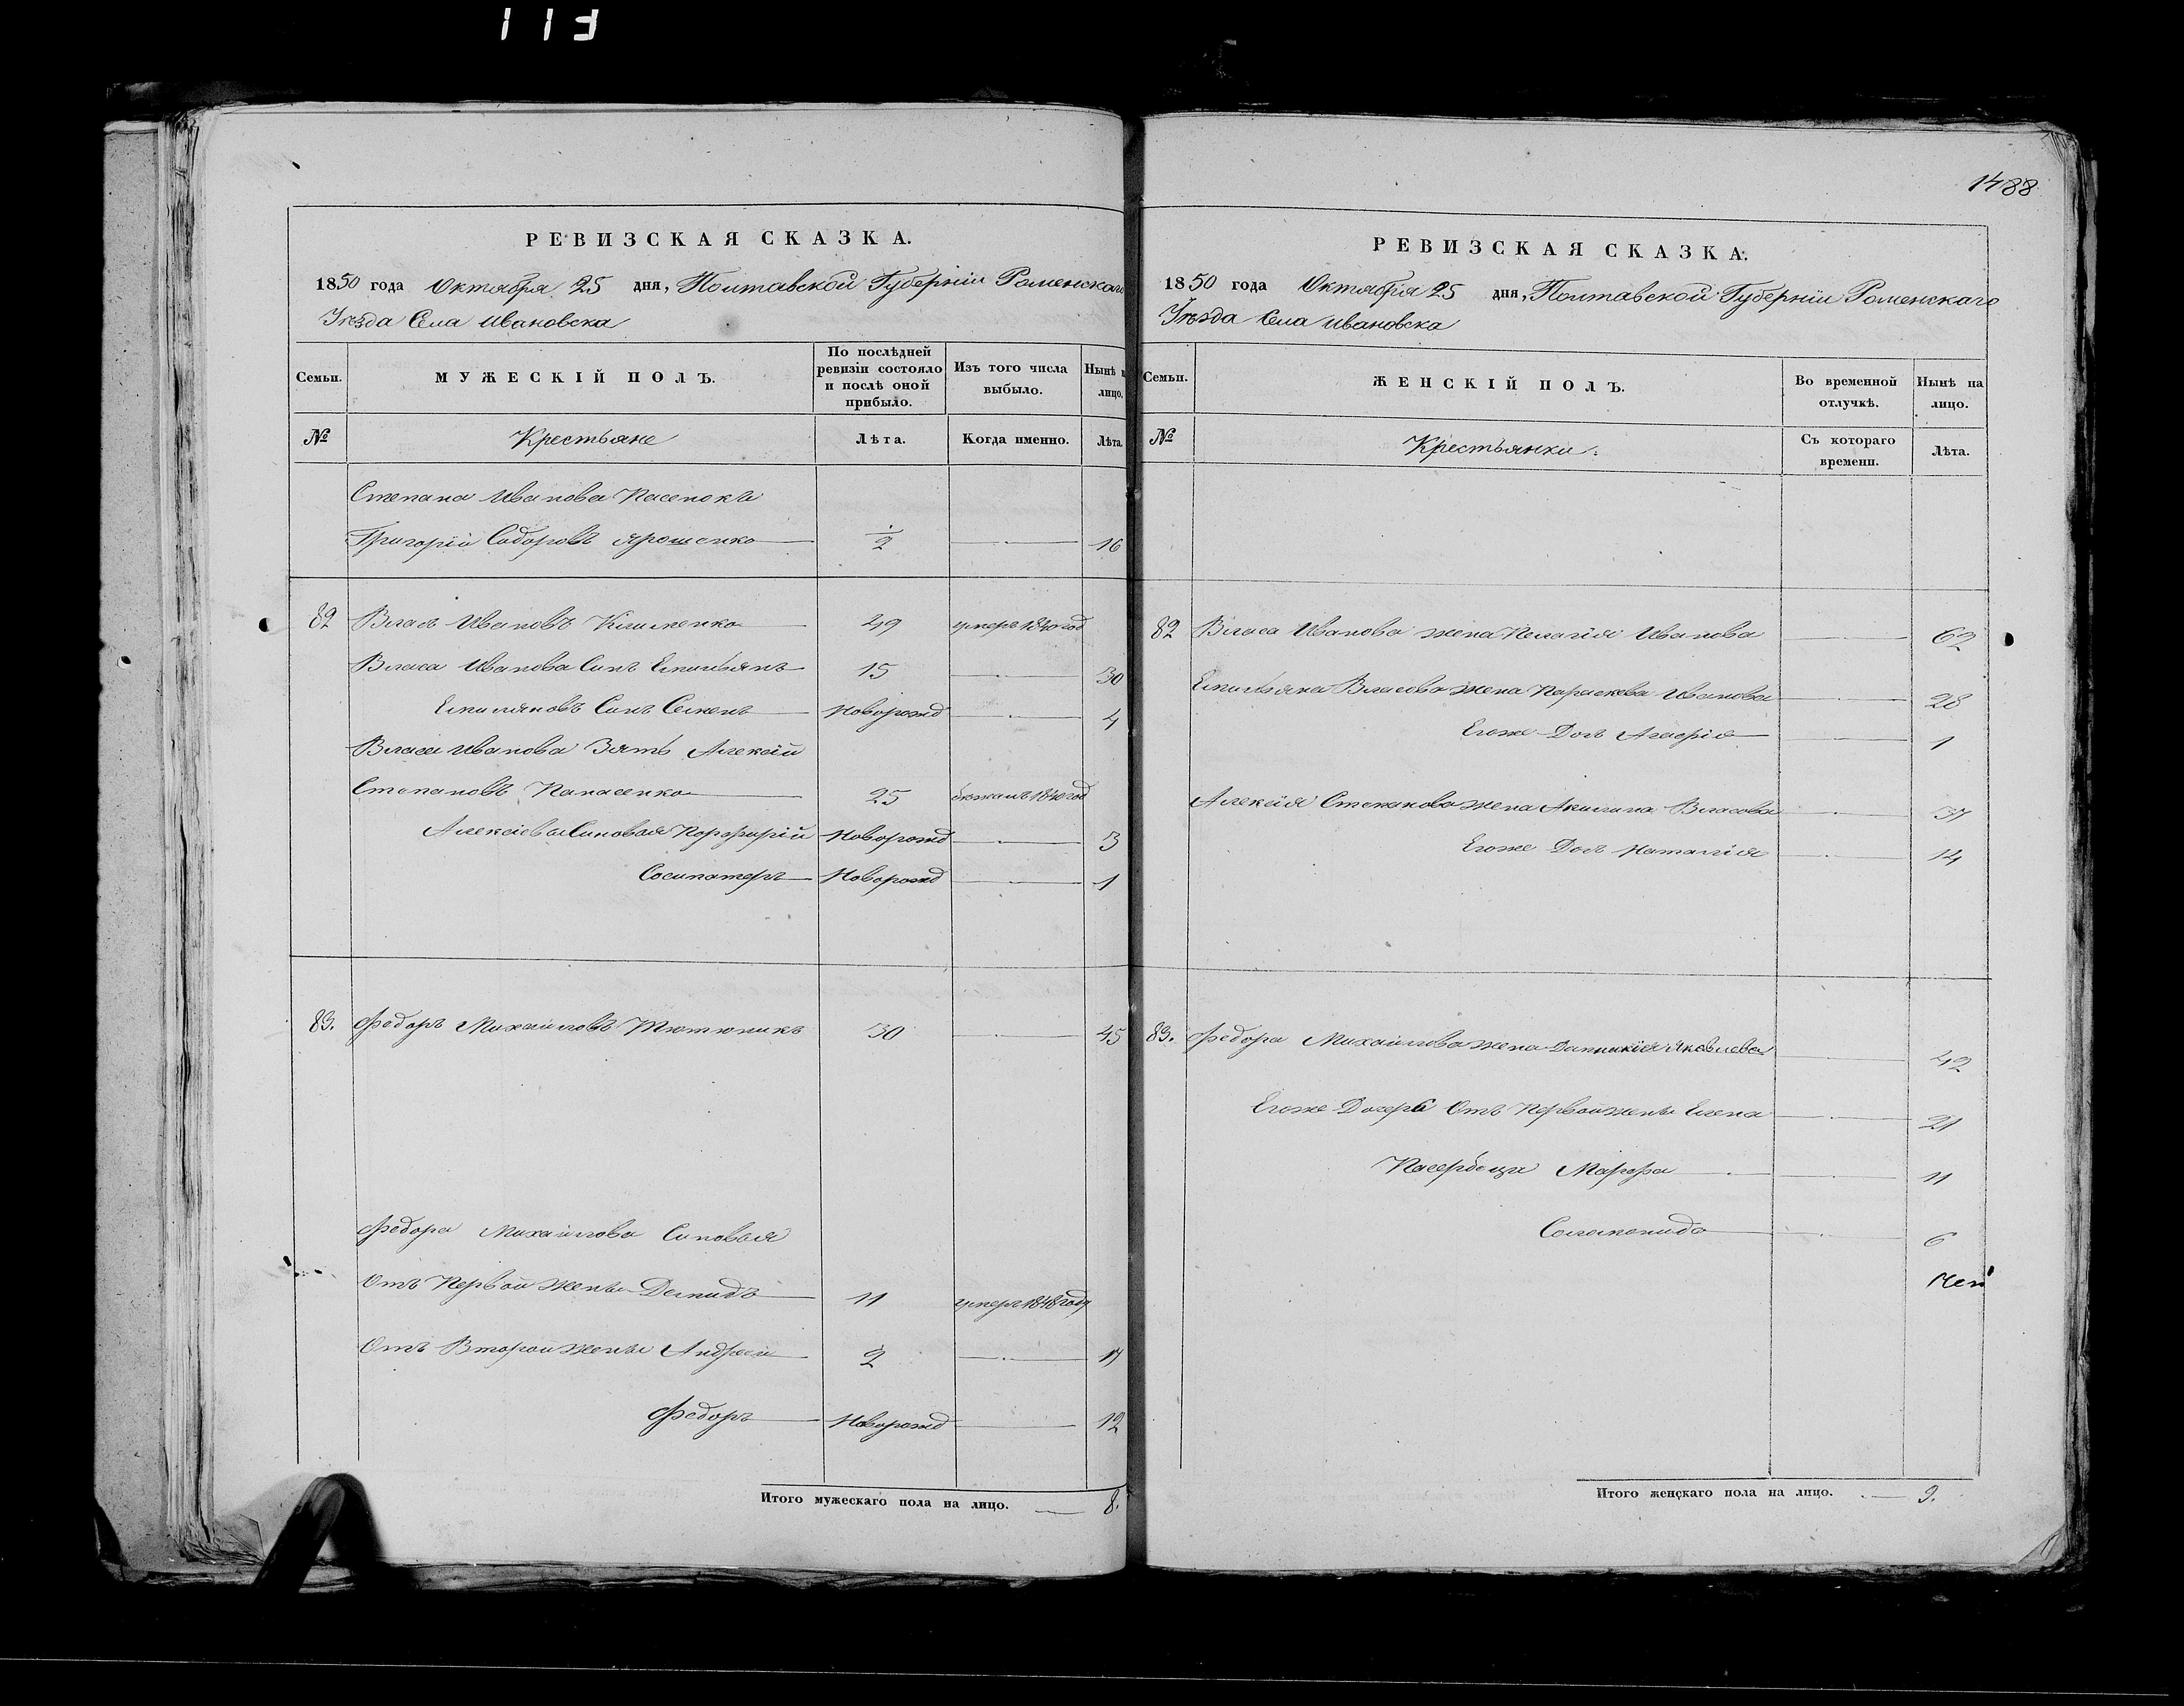 113
РЕВИЗСКАЯ СКАЗКА.
1850 года Октября 25 дня, Полтавской Губерніи Роменскаго
Уѣзда Села Ивановска
Семьи.
МУЖЕСКІЙ ПОЛЪ.
По послѣдней ревизіи состояло и послѣ оной прибыло.
Изъ того числа выбыло.
Нынѣ н лицо.
№
Крестьяне
Лѣта.
Когда именно.
Лѣта.
Степана Иванова Пасенокъ
Григорій Сидоровъ Ярошенко 1/2 16
82 Власъ Ивановъ Клименко 49 умеръ 1840 год
Власа Иванова Синъ Емильянъ 15 30
Емиляновъ Синъ Семенъ Новорожд 4
Власа Иванова Зять Алексій
Степановъ Панасенко 25 бежалъ 1840 год
Алексіева Синовья Порфирій Новорожд 3
Сосипатеръ Новорожд 1
83. Федоръ Михайловъ Тютюникъ 30 45
Федора Михайлова Синовья
Отъ Первой Жены Демидъ 11 умеръ 1848 году
Отъ Второй Жены Андрей 2 17
Федоръ Новорожд 12
Итого мужескаго пола на лицо. 8.
1488
РЕВИЗСКАЯ СКАЗКА.
1850 года Октября 25 дня, Полтавской Губерніи Роменскаго
Уѣзда Села Ивановска
Семьи.
ЖЕНСКІЙ ПОЛЪ.
Во временной отлучкѣ.
Нынѣ на лицо.
№
Крестьянки.
Съ котораго времени.
Лѣта.
82 Власа Иванова жена Пелагія Иванова 62
Емильяна Власова жена Параскева Иванова 28
Егоже Доч Агафія 1
Алексія Степанова жена Акилина Власова 37
Егоже Доч Наталія 14
83. Федора Михайлова жена Домникія Яковлева 42
Егоже Дочери Отъ Первой жены Елена 21
Пасербеци Марфа 11
Соломонида 6
Итого женскаго пола на лицо. 9.